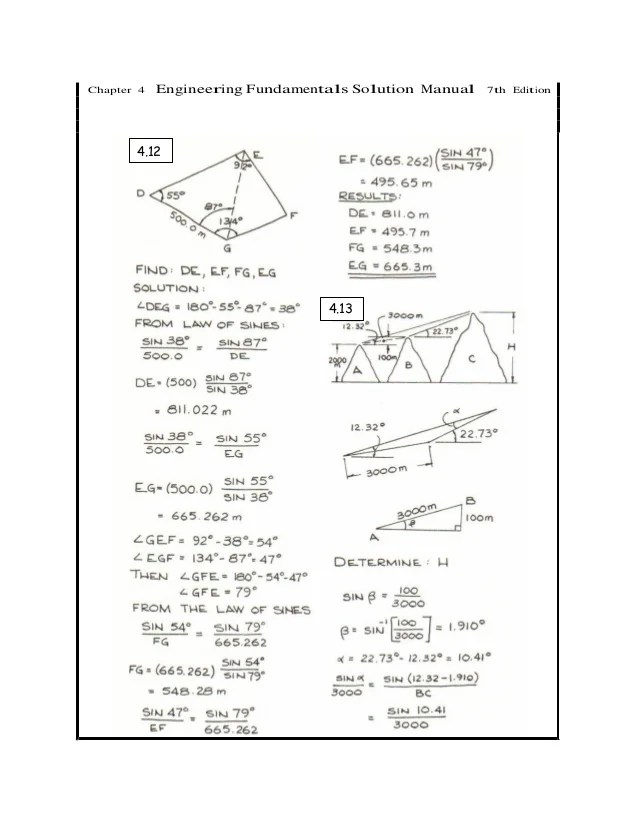 Chapter 4 Engineering Fundamentals Solution Manual 7th Edition
4.12
E
92°
D
55°
87°
134°
500.0 m
F
G
FIND: DE, EF, FG, EG
SOLUTION:
∠DEG = 180°-55°-87° = 38°
FROM LAW OF SINES:
SIN 38°/500.0 = SIN 87°/DE
DE = (500) SIN 87°/SIN 38°
= 811.022 m
SIN 38°/500.0 = SIN 55°/EG
EG = (500.0) SIN 55°/SIN 38°
= 665.262 m
∠GEF = 92°-38° = 54°
∠EGF = 134°-87° = 47°
THEN ∠GFE = 180°-54°-47°
∠GFE = 79°
FROM THE LAW OF SINES
SIN 54°/FG = SIN 79°/665.262
FG = (665.262) SIN 54°/SIN 79°
= 548.28 m
SIN 47°/EF = SIN 79°/665.262
EF = (665.262)(SIN 47°/SIN 79°)
= 495.65 m
RESULTS:
DE = 811.0 m
EF = 495.7 m
FG = 548.3 m
EG = 665.3 m
4.13
3000 m
12.32°
22.73°
H
2000
100m
A
B
C
α
12.32°
22.73°
3000 m
B
3000m
100m
A
β
DETERMINE: H
SIN β = 100/3000
β = SIN⁻¹[100/3000] = 1.910°
α = 22.73°-12.32° = 10.41°
SIN α/3000 = SIN (12.32-1.910)/BC
= SIN 10.41/3000